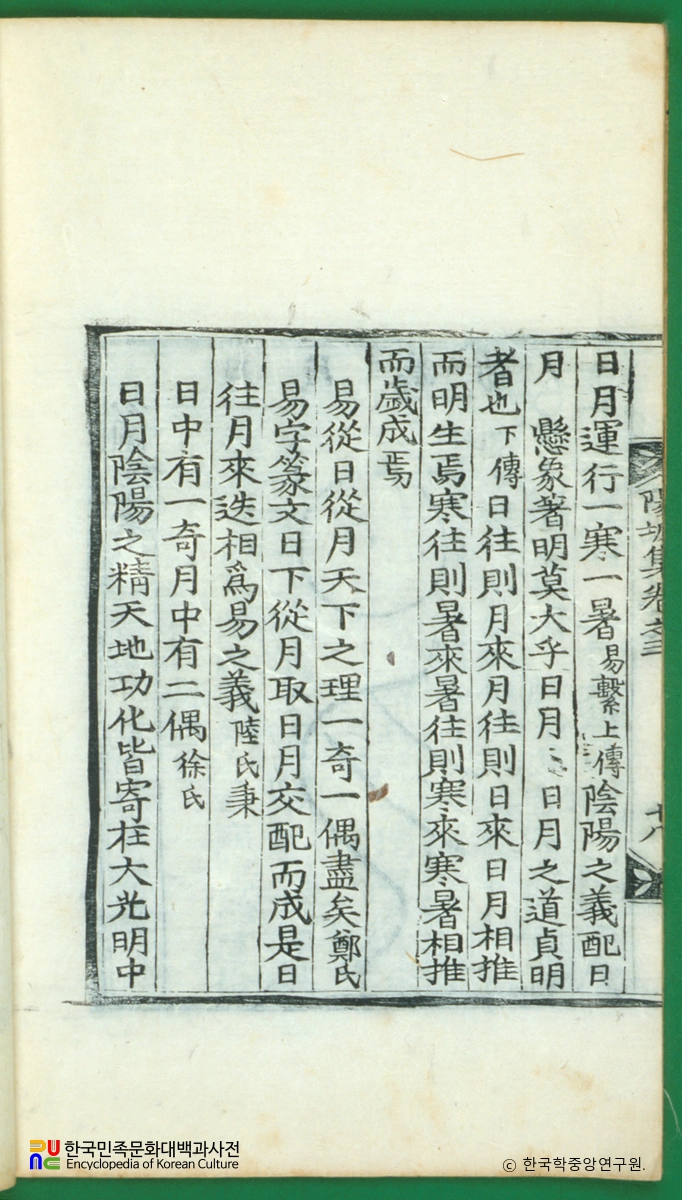 陽坡集卷之
十八
日月運行一寒一暑易繫上傳陰陽之義配日
月 懸象著明莫大乎日月 日月之道貞明
者也下傳日往則月來月往則日來日月相推
而明生焉寒往則暑來暑往則寒來寒暑相推
而歲成焉
易從日從月天下之理一奇一偶盡矣鄭氏
易字篆文日下從月取日月交配而成是日
往月來迭相爲易之義陸氏秉
日中有一奇月中有二偶徐氏
日月陰陽之精天地功化皆寄柱大光明中
한국민족문화대백과사전
Encyclopedia of Korean Culture
ⓒ 한국학중앙연구원.